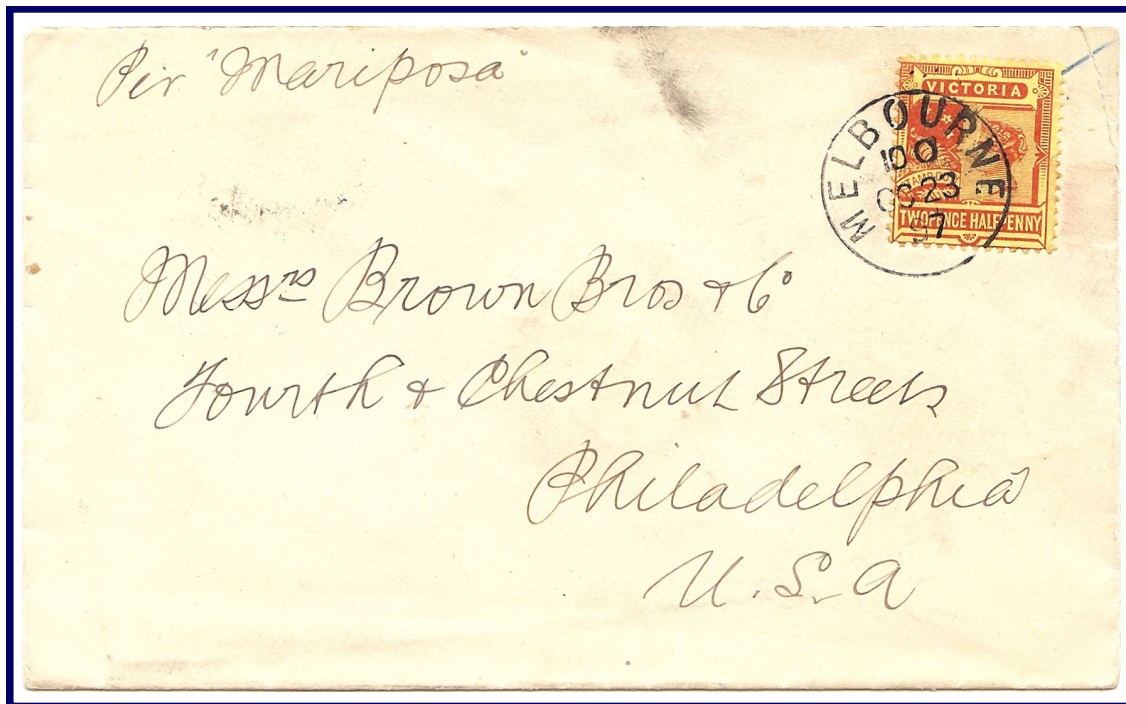 Per "Mariposa"
VICTORIA
MELBOURNE
10 O
OC 23
97
TWOPENCE HALFPENNY
Messrs Brown Bros & Co
Fourth & Chestnut Streets
Philadelphia
U.S.A